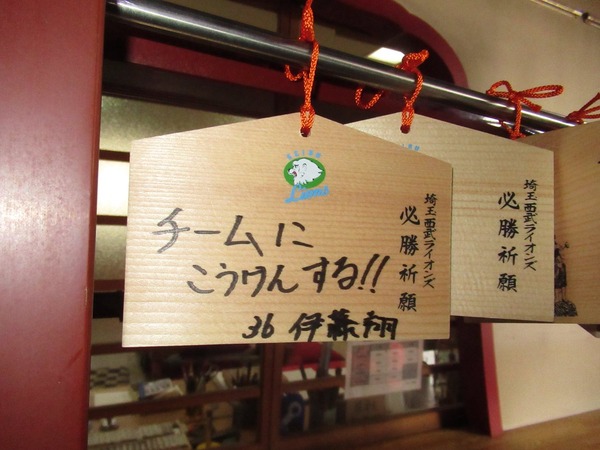 Lions
埼玉西武ライオンズ
必勝祈願
チームに
こうけんする!!
36 伊藤翔
埼玉西武ライオンズ
必勝祈願